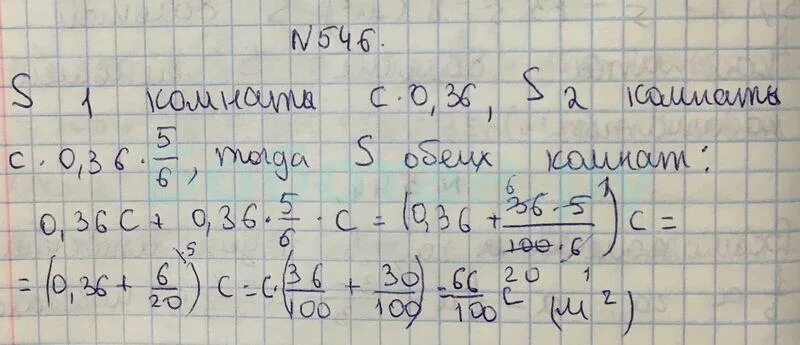 N546.
S 1 комнаты с·0,36, S 2 комнаты
с·0,36·5/6, тогда S обеих комнат:
0,36с + 0,36·5/6·с = (0,36 + 36·5/100·6) с =
= (0,36 + 6/20) с = с·(36/100 + 30/100) = 66/100 с (м²)